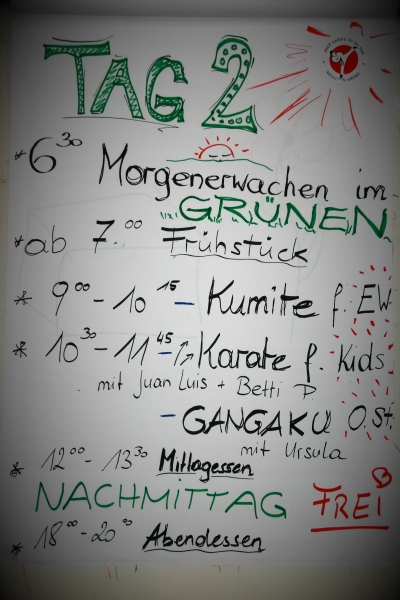 TAG 2
* 6 30 Morgenerwachen im
GRÜNEN
* ab 7.00 Frühstück
* 9 00 - 10 15 - Kumite f. EW
* 10 30 - 11 45 - Karate f. Kids
mit Juan Luis + Betti
- GANGAKU O.St.
mit Ursula
* 12 00 - 13 30 Mittagessen
NACHMITTAG FREI
* 18 00 - 20 00 Abendessen